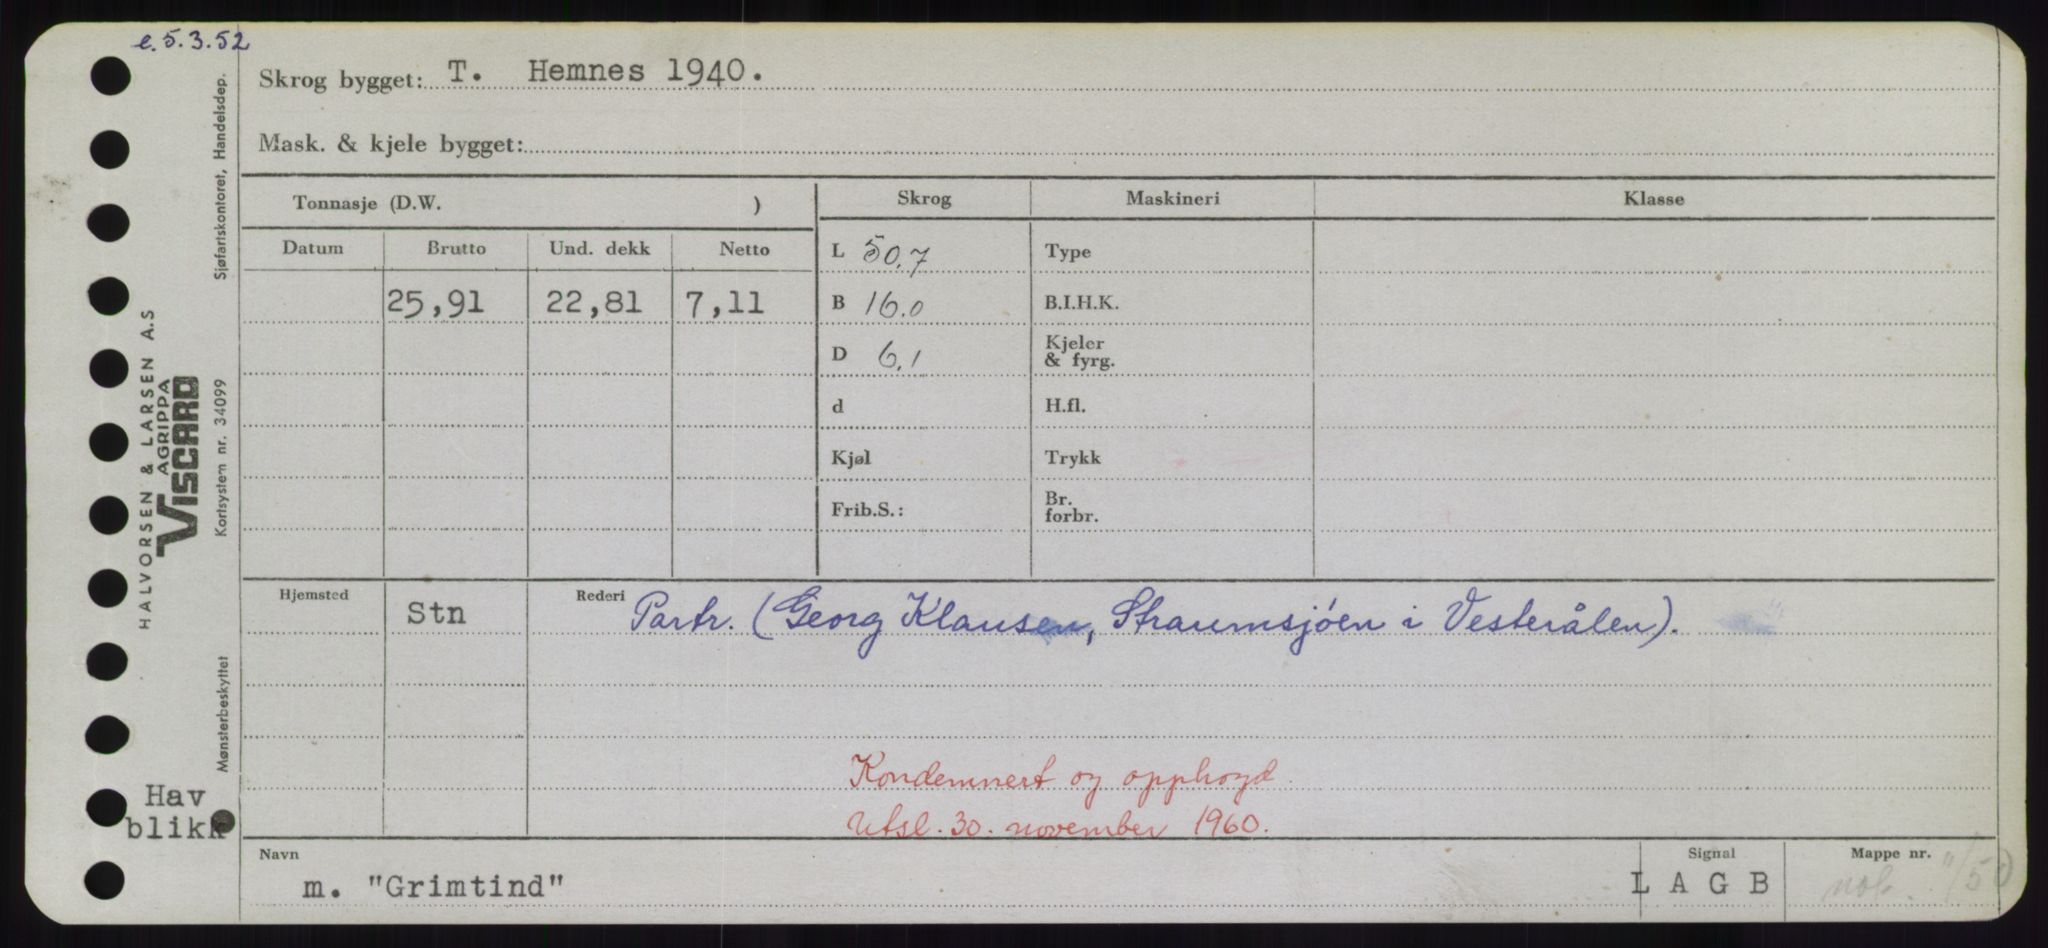 e. 5.3.52
Skrog bygget: T. Hemnes 1940.
Mask. & kjele bygget:
Tonnasje (D.W. )
Skrog
Maskineri
Klasse
Datum
Brutto
Und. dekk
Netto
25,91
22,81
7,11
L 50.7
B 16.0
D 6.1
d
Kjøl
Frib.S.:
Type
B.I.H.K.
Kjeler
& fyrg.
H.fl.
Trykk
Br.
forbr.
Hjemsted
Stn
Rederi Partr. (Georg Klausen, Straumsjøen i Vesterålen).
Kondemnert og opphogd.
Utsl. 30. november 1960.
Navn
m. "Grimtind"
Signal
L A G B
Mappe nr.
Hav
blikk
HALVORSEN & LARSEN A.S
AGRIPPA
VISCARD
Sjøfartskontoret, Handelsdep.
Kortsystem nr. 34099
Mønsterbeskyttet